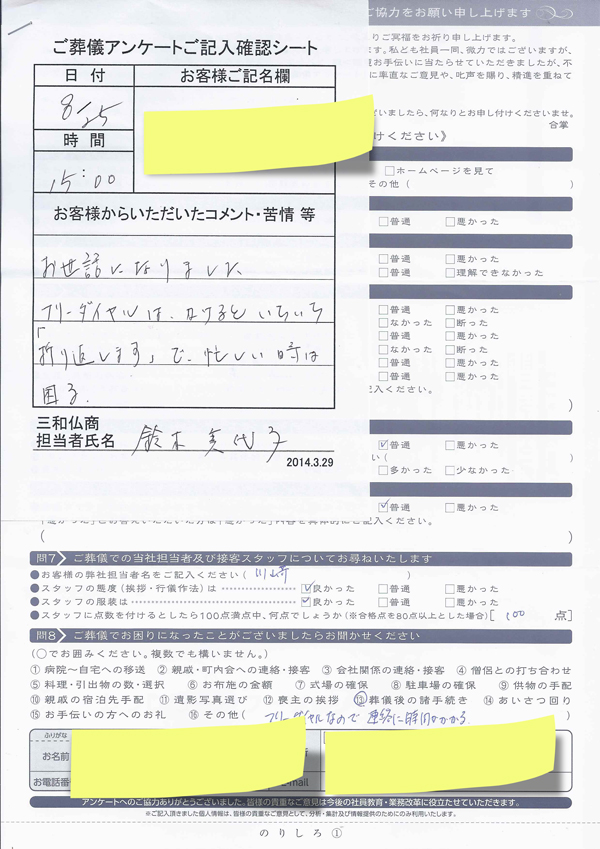 ご協力をお願い申し上げます
りご冥福をお祈り申し上げます。
ます。私ども社員一同、微力ではございますが、
お手伝いに当たらせていただきましたが、不
に率直なご意見や、叱声を賜り、精進を重ねて
いましたら、何なりとお申し付けくださいませ。
合掌
けください》
□ホームページを見て
その他( )
□普通 □悪かった
□普通 □悪かった
□普通 □理解できなかった
□普通 □悪かった
□なかった □断った
□普通 □悪かった
□なかった □断った
□普通 □悪かった
□普通 □悪かった
記入ください。
)
☑普通 □悪かった
い( )
□多かった □少なかった
☑普通 □悪かった
ご葬儀アンケートご記入確認シート
日付 お客様ご記名欄
8/25
時間
15:00
お客様からいただいたコメント・苦情 等
お世話になりました
フリーダイヤルは、かけるといちいち
「折り返します」で、忙しい時は
困る。
三和仏商
担当者氏名 鈴木美代子
2014.3.29
( )
問7 ご葬儀での当社担当者及び接客スタッフについてお尋ねいたします
●お客様の弊社担当者名をご記入ください( 川崎 )
●スタッフの態度(挨拶・行儀作法)は ☑良かった □普通 □悪かった
●スタッフの服装は ☑良かった □普通 □悪かった
●スタッフに点数を付けるとしたら100点満点中、何点でしょうか(※合格点を80点以上とした場合)[ 100 点]
問8 ご葬儀でお困りになったことがございましたらお聞かせください
(○でお囲みください。複数でも構いません。)
①病院〜自宅への移送 ②親戚・町内会への連絡・接客 ③会社関係の連絡・接客 ④僧侶との打ち合わせ
⑤料理・引出物の数・選択 ⑥お布施の金額 ⑦式場の確保 ⑧駐車場の確保 ⑨供物の手配
⑩親戚の宿泊先手配 ⑪遺影写真選び ⑫喪主の挨拶 ⑬葬儀後の諸手続き ⑭あいさつ回り
⑮お手伝いの方へのお礼 ⑯その他( フリーダイヤルなので連絡に時間がかかる )
ふりがな
お名前
お電話番
e-mail
アンケートへのご協力ありがとうございました。皆様の貴重なご意見は今後の社員教育・業務改革に役立たせていただきます。
※ご記入頂きました個人情報は、皆様の貴重なご意見として、分析・集計及び情報提供のためにのみ利用いたします。
のりしろ①